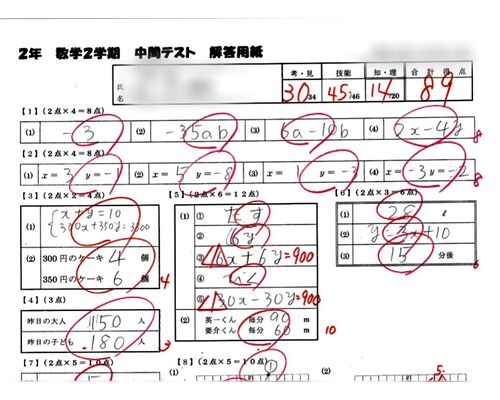 2年 数学2学期 中間テスト 解答用紙
氏名 考・見 技能 知・理 合計得点
30/34 45/46 14/20 89
【1】(2点×4=8点)
(1) -3 (2) -35ab (3) 6a-10b (4) 2x-4y 8
【2】(2点×4=8点)
(1) x=3 y=-1 (2) x=5 y=-8 (3) x=1 y=-3 (4) x=-3 y=-2 8
【3】(2点×2=4点)
(1) x+y=10
300x+350y=3300
(2) 300円のケーキ 4 個
350円のケーキ 6 個 4
【4】(3点)
昨日の大人 150 人
昨日の子ども 180 人 3
【5】(2点×6=12点)
(1) ①
② 6y
③ 6x+6y=900
④
⑤ 30x-30y=900
(2) 英一くん 毎分 90 m
要介くん 毎分 60 m 10
【6】(2点×3=6点)
(1) 28 ℓ
(2) y=3x+10
(3) 15 分後 6
【7】(2点×5=10点)
(1)
【8】(2点×5=10点)
(1) (2)